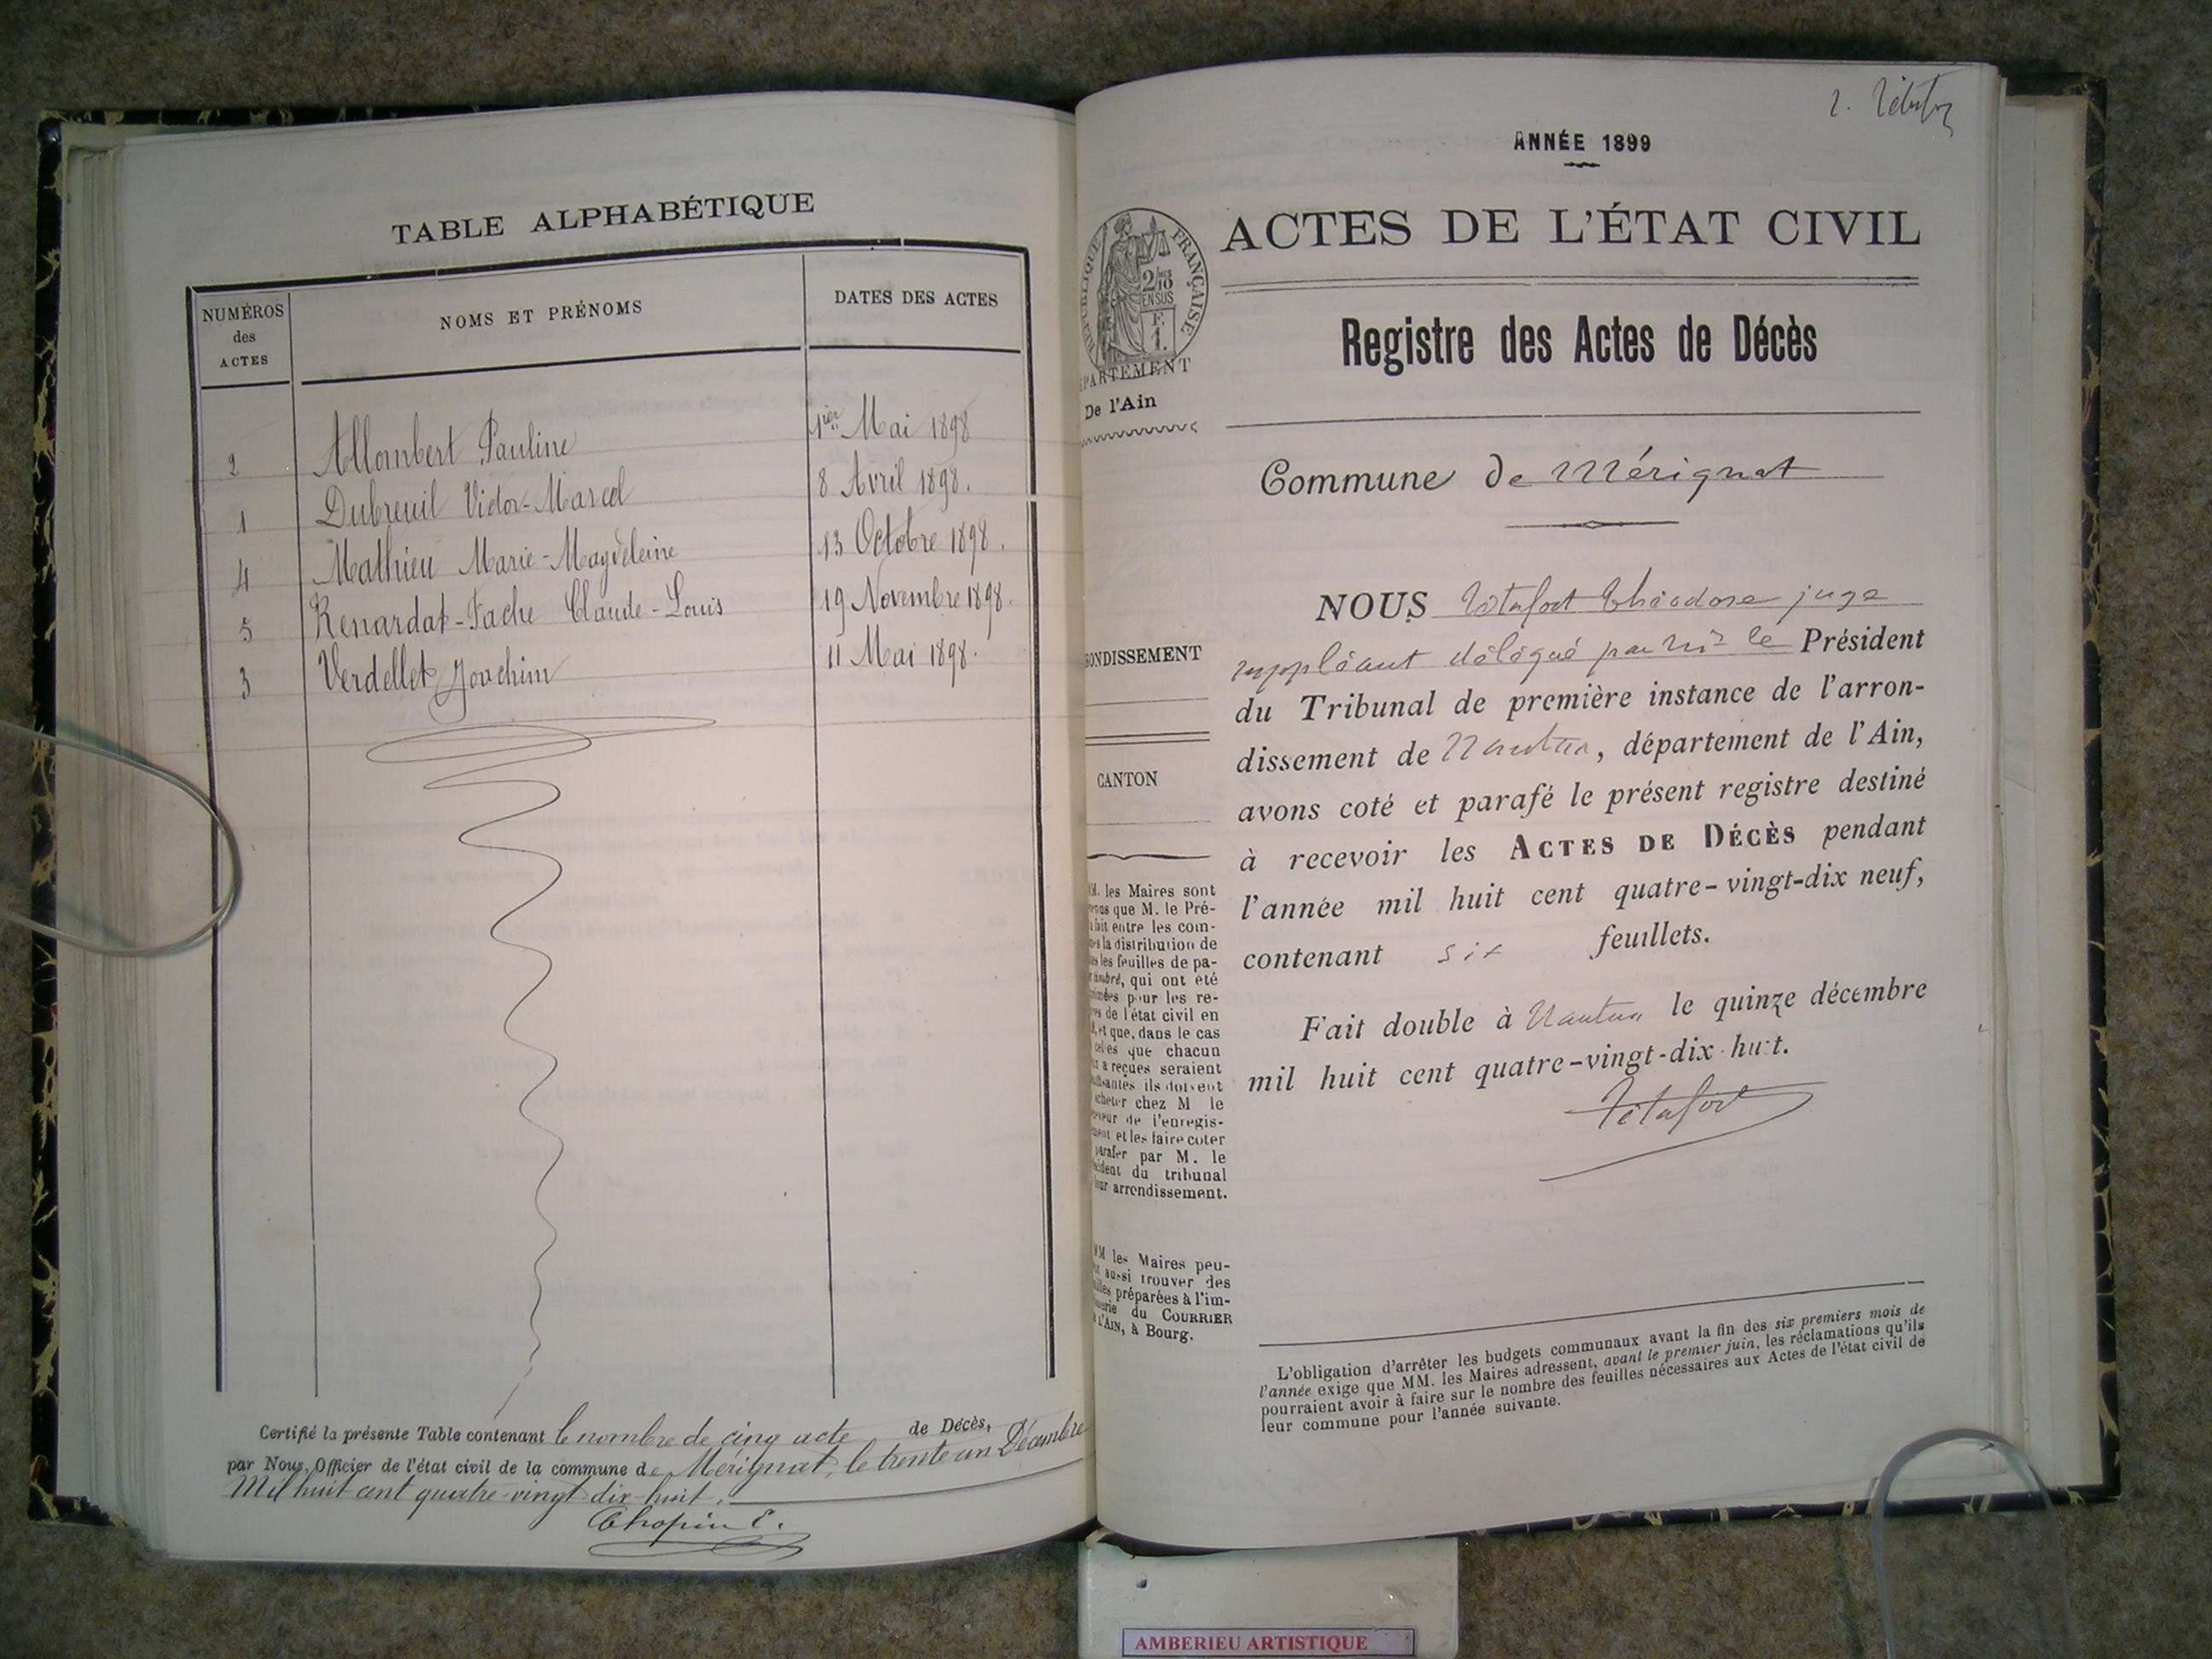 TABLE ALPHABÉTIQUE
NUMÉROS des ACTES
NOMS ET PRÉNOMS
DATES DES ACTES
2 Allombert Pauline 1ier Mai 1898
1 Dubreuil Victor-Marcel 8 Avril 1898.
4 Mathieu Marie-Magdeleine 13 Octobre 1898.
5 Renardat-Fache Claude-Louis 19 Novembre 1898.
3 Verdellet Joachim 11 Mai 1898.
Certifié la présente Table contenant le nombre de cinq acte de Décès,
par Nous, Officier de l'état civil de la commune de Mérignat, le trente un Décembre
Mil huit cent quatre-vingt dix-huit.
Chopin E.
ANNÉE 1899
RÉPUBLIQUE FRANÇAISE
2/10 EN SUS
F. 1.
ACTES DE L'ÉTAT CIVIL
PARTEMENT
De l'Ain
Registre des Actes de Décès
Commune de Mérignat
NOUS Théodore juge
suppléant délégué par Mr le Président
du Tribunal de première instance de l'arron-
dissement de Nantua, département de l'Ain,
avons coté et parafé le présent registre destiné
à recevoir les ACTES DE DÉCÈS pendant
l'année mil huit cent quatre-vingt-dix neuf,
contenant six feuillets.
Fait double à Nantua le quinze décembre
mil huit cent quatre-vingt-dix-huit.
ONDISSEMENT
CANTON
M. les Maires sont
que M. le Pré-
fait entre les com-
la distribution de
les feuilles de pa-
timbré, qui ont été
primées pour les re-
de l'état civil en
et que, dans le cas
celles que chacun
a reçues seraient
ils doivent
acheter chez M le
de l'enregis-
et les faire coter
parafer par M. le
du tribunal
leur arrondissement.
MM les Maires peu-
aussi trouver des
préparées à l'im-
du COURRIER
L'AIN, à Bourg.
L'obligation d'arrêter les budgets communaux avant la fin des six premiers mois de
l'année exige que MM. les Maires adressent, avant le premier juin, les réclamations qu'ils
pourraient avoir à faire sur le nombre des feuilles nécessaires aux Actes de l'état civil de
leur commune pour l'année suivante.
AMBERIEU ARTISTIQUE